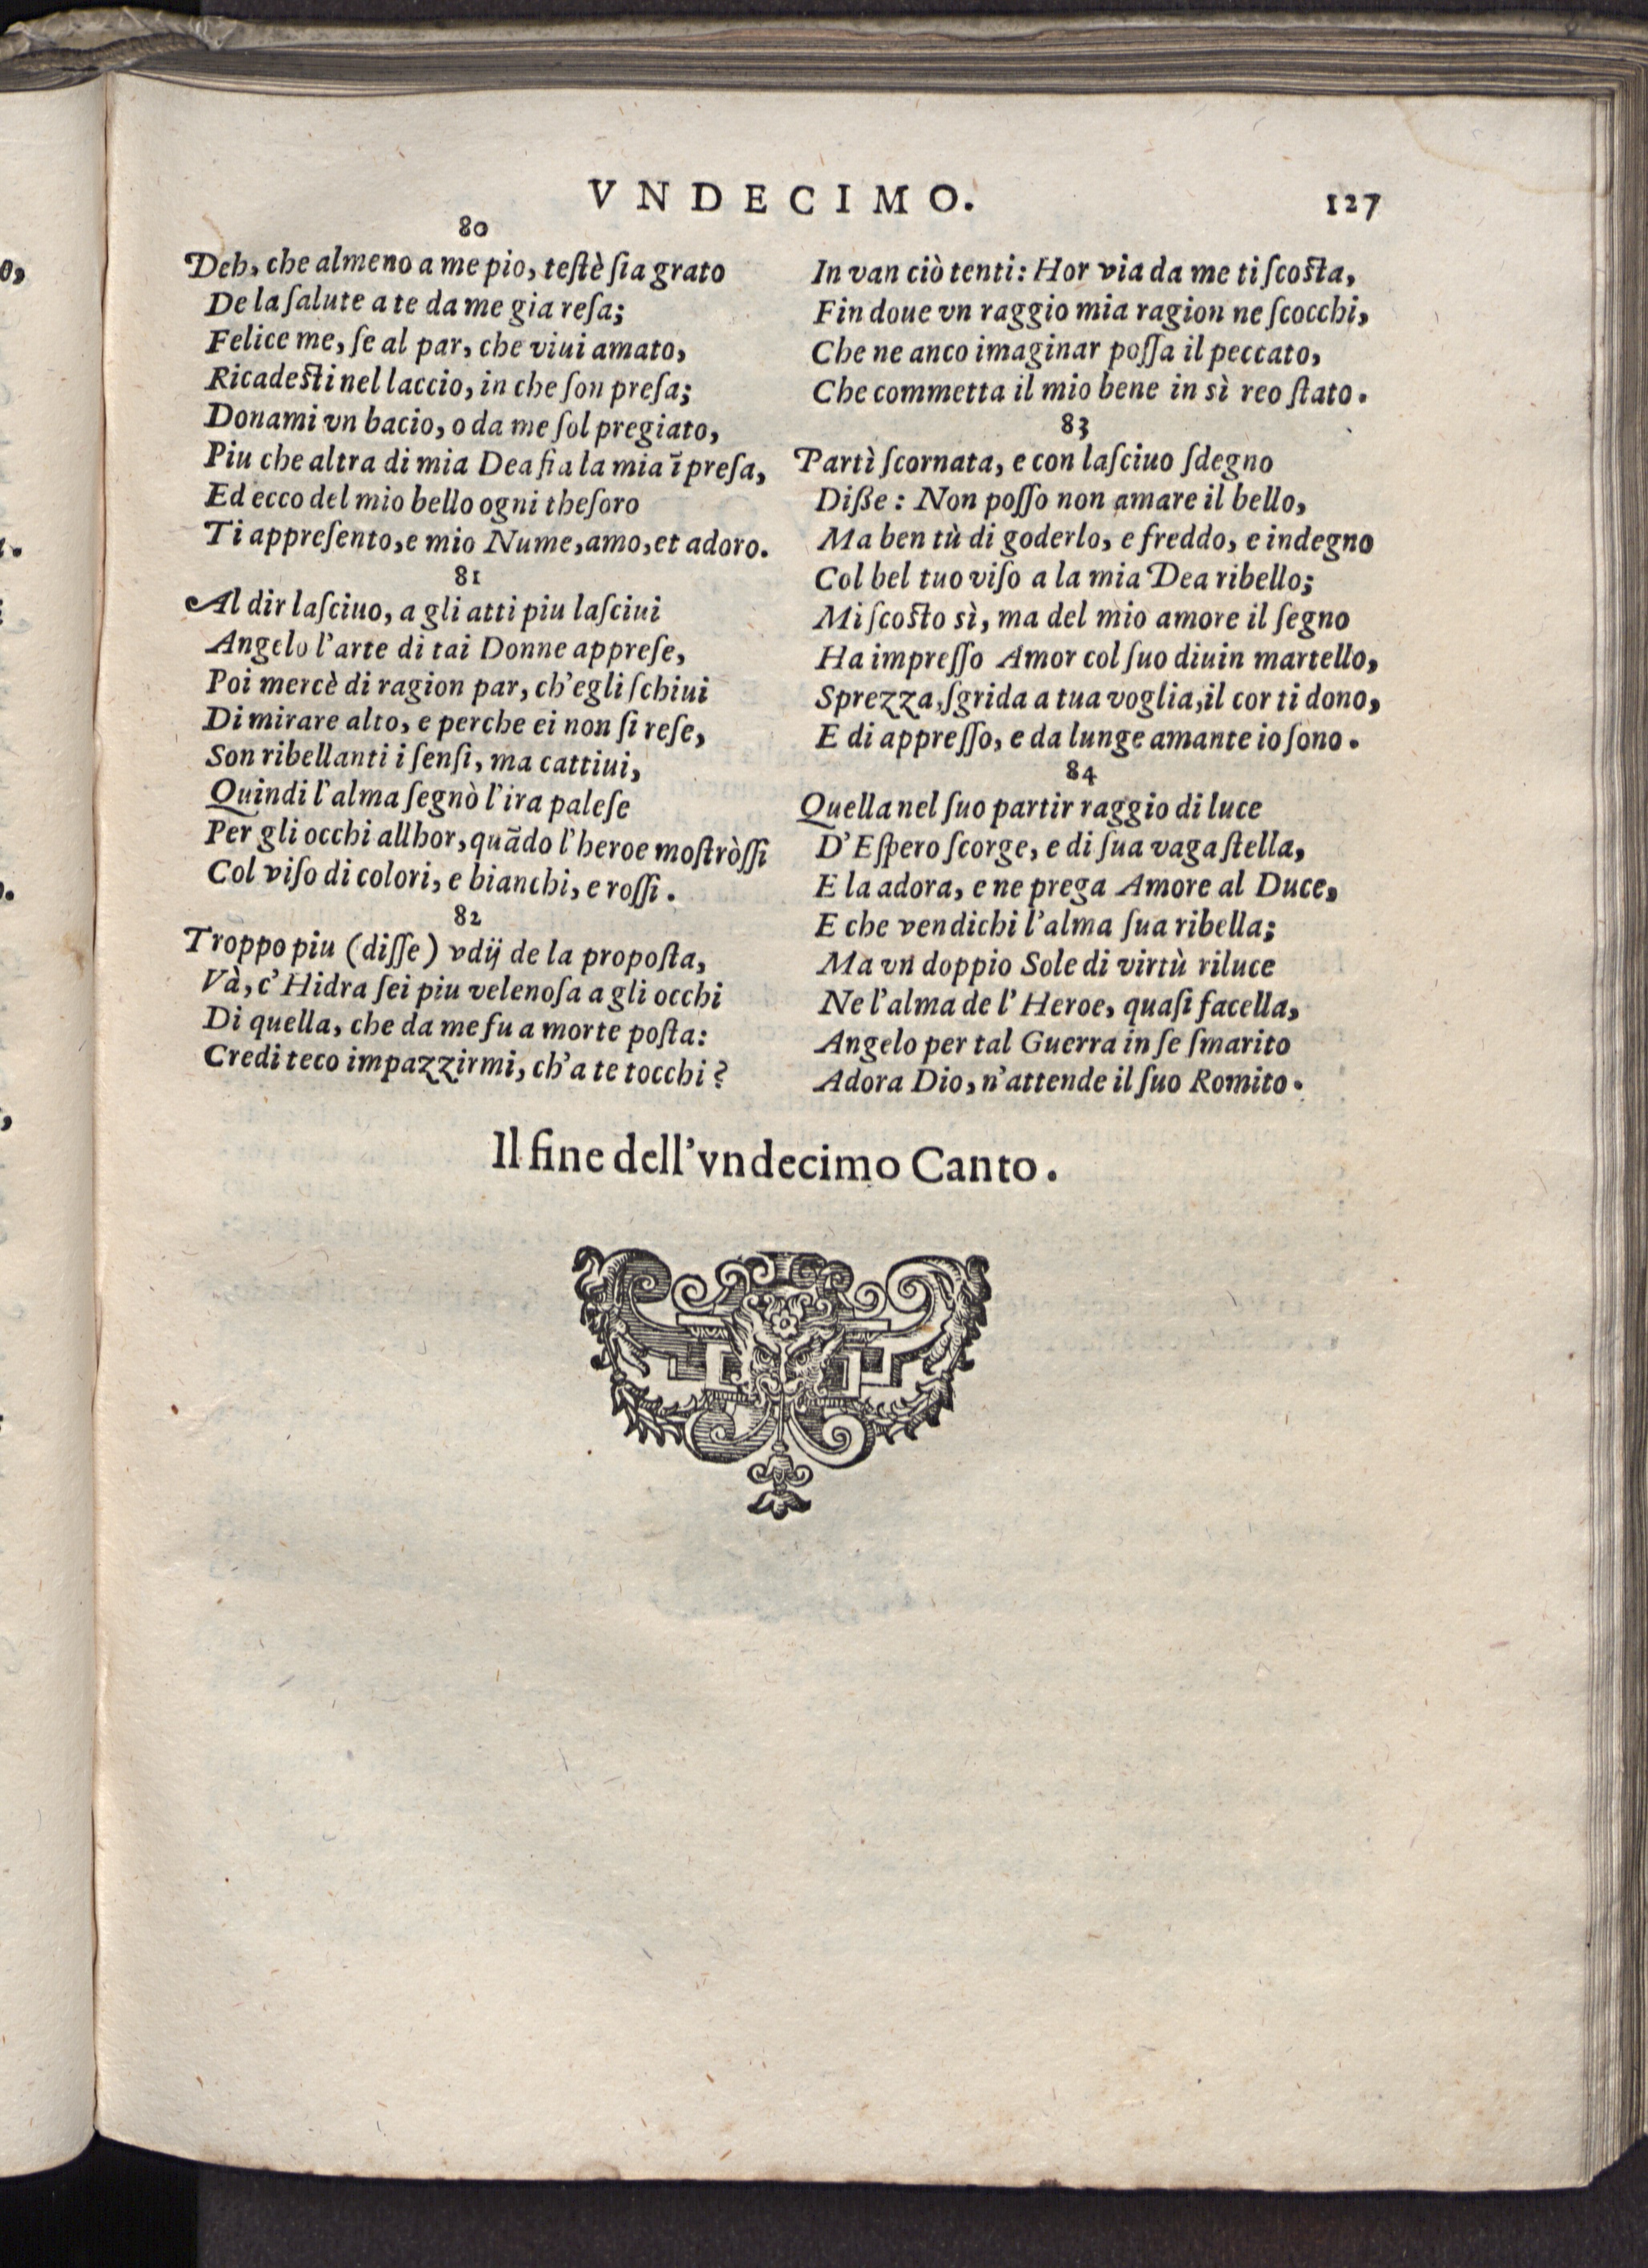 VNDECIMO.
127
80
Deh, che almeno a me pio, teſtè ſia grato
De la ſalute a te da me gia reſa;
Felice me, ſe al par, che viui amato,
Ricadeſti nel laccio, in che ſon preſa;
Donami vn bacio, o da me ſol pregiato,
Piu che altra di mia Dea fia la mia ĩpreſa,
Ed ecco del mio bello ogni theſoro
Ti appreſento, e mio Nume, amo, et adoro.
81
Al dir laſciuo, a gli atti piu laſciui
Angelo l'arte di tai Donne appreſe,
Poi mercè di ragion par, ch'egli ſchiui
Di mirare alto, e perche ei non ſi reſe,
Son ribellanti i ſenſi, ma cattiui,
Quindi l'alma ſegnò l'ira paleſe
Per gli occhi allhor, quãdo l'heroe moſtròſſi
Col viſo di colori, e bianchi, e roſſi.
82
Troppo piu (diſſe) vdij de la propoſta,
Và, c'Hidra ſei piu velenoſa a gli occhi
Di quella, che da me fu a morte poſta:
Credi teco impazzirmi, ch'a te tocchi?
In van ciò tenti: Hor via da me ti ſcoſta,
Fin doue vn raggio mia ragion ne ſcocchi,
Che ne anco imaginar poſſa il peccato,
Che commetta il mio bene in sì reo ſtato.
83
Partì ſcornata, e con laſciuo ſdegno
Diße: Non poſſo non amare il bello,
Ma ben tù di goderlo, e freddo, e indegno
Col bel tuo viſo a la mia Dea ribello;
Mi ſcoſto sì, ma del mio amore il ſegno
Ha impreſſo Amor col ſuo diuin martello,
Sprezza, ſgrida a tua voglia, il cor ti dono,
E di appreſſo, e da lunge amante io ſono.
84
Quella nel ſuo partir raggio di luce
D'Eſpero ſcorge, e di ſua vaga ſtella,
E la adora, e ne prega Amore al Duce,
E che vendichi l'alma ſua ribella;
Ma vn doppio Sole di virtù riluce
Ne l'alma de l'Heroe, quaſi facella,
Angelo per tal Guerra in ſe ſmarito
Adora Dio, n'attende il ſuo Romito.
Il fine dell'vndecimo Canto.